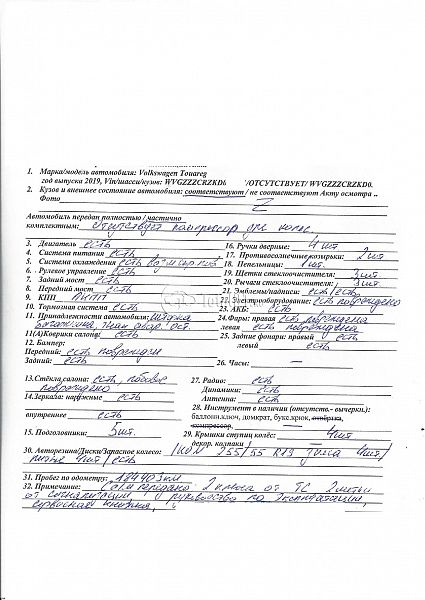 1. Марка/модель автомобиля: Volkswagen Touareg
год выпуска 2019, Vin/шасси/кузов: WVGZZZCRZKD6 /ОТСУТСТВУЕТ/ WVGZZZCRZKD0.
2. Кузов и внешнее состояние автомобиля: соответствуют / не соответствуют Акту осмотра ..
Фото Z
Автомобиль передан полностью / частично
комплектным: отсутствует компрессор для колес
3. Двигатель есть
4. Система питания есть
5. Система охлаждения есть
6. Рулевое управление есть
7. Задний мост есть
8. Передний мост есть
9. КПП АКПП
10. Тормозная система есть
11. Принадлежности автомобиля: шторка
багажника, знак авар. ост.
11(А)Коврики салона: есть
12. Бампер:
Передний: есть поврежден
Задний: есть
13.Стёкла салона: есть, лобовое
повреждено
14.Зеркала: наружные есть
внутренние есть
15. Подголовники: 5шт.
16. Ручки дверные: 4шт
17. Противосолнечные козырьки: 2шт
18. Пепельницы: 1шт.
19. Щетки стеклоочистителя: 3шт
20. Рычаги стеклоочистителя: 3шт
21. Эмблемы/надписи: есть/есть
22. Электрооборудование: есть повреждено
23. АКБ: есть
24.Фары: правая есть повреждена
левая есть повреждена
25. Задние фонари: правый есть
левый есть
26. Часы: —
27. Радио: есть
Динамики: есть
Антенна: есть
28. Инструмент в наличии (отсутств.- вычеркн.):
баллонн.ключ, домкрат, букс.крюк, аптечка,
компрессор,
29. Крышки ступиц колёс: 4шт
декор. колпаки /
30. Авторезина/Диски/Запасное колесо: 255/55 R19 4шт/
литые 4шт/ есть
31. Пробег по одометру: 184403км
32. Примечание: передано 2 ключа от ТС 2
от сигнализации, руководство по эксплуатации
сервисная книжка